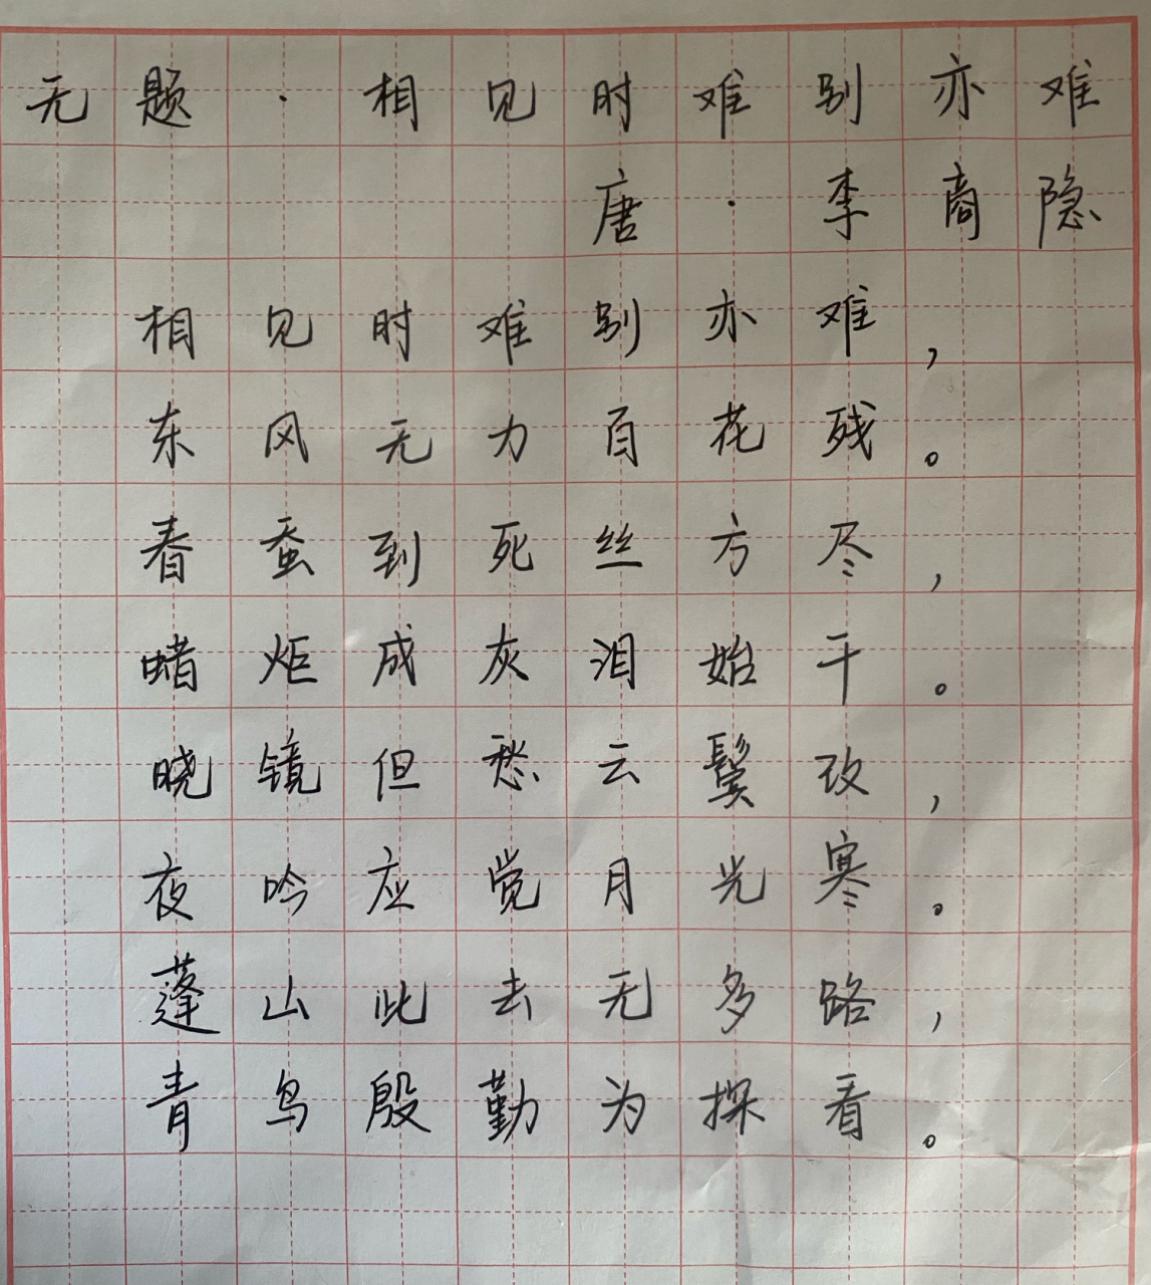 无题·相见时难别亦难
唐·李商隐
相见时难别亦难，
东风无力百花残。
春蚕到死丝方尽，
蜡炬成灰泪始干。
晓镜但愁云鬓改，
夜吟应觉月光寒。
蓬山此去无多路，
青鸟殷勤为探看。